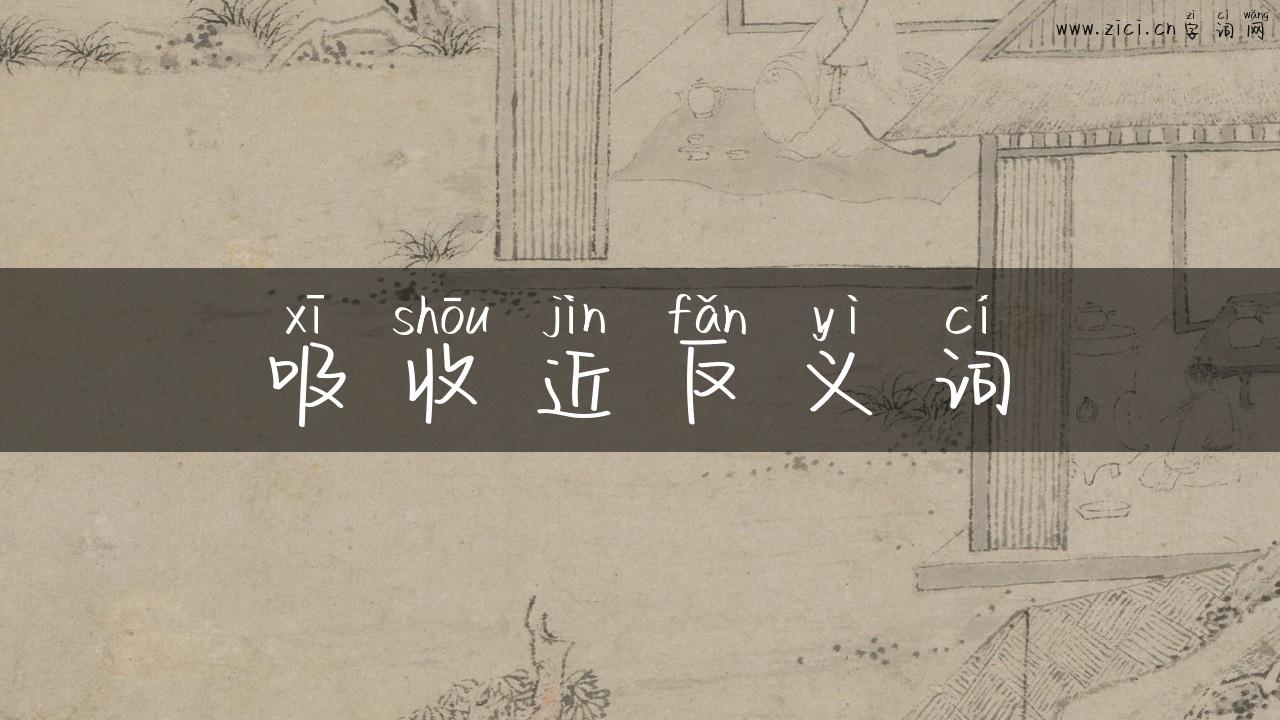 zì cí wǎng
www.zici.cn 字词网
xī shōu jìn fǎn yì cí
吸收近反义词